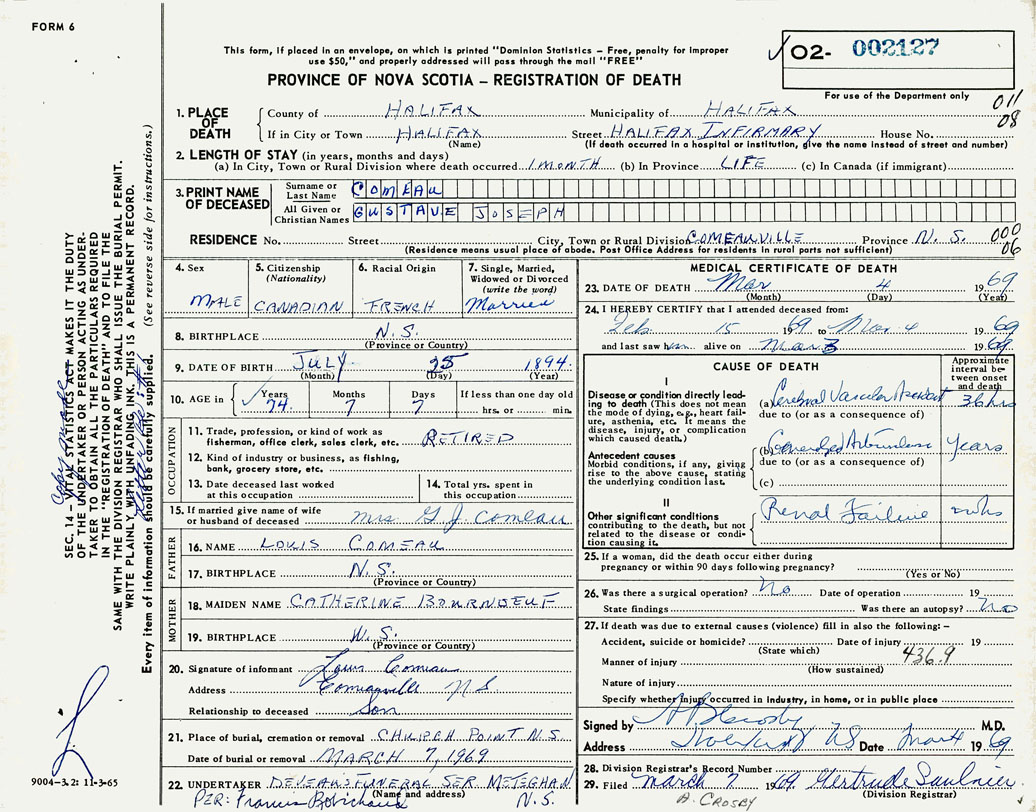 FORM 6
This form, if placed in an envelope, on which is printed "Dominion Statistics – Free, penalty for improper
use $50," and properly addressed will pass through the mail "FREE"
PROVINCE OF NOVA SCOTIA – REGISTRATION OF DEATH
O2- 002127
For use of the Department only
011
08
1. PLACE OF DEATH
County of HALIFAX Municipality of HALIFAX
If in City or Town HALIFAX Street HALIFAX INFIRMARY House No.
(Name) (If death occurred in a hospital or institution, give the name instead of street and number)
2. LENGTH OF STAY (in years, months and days)
(a) In City, Town or Rural Division where death occurred 1 MONTH (b) In Province LIFE (c) In Canada (if immigrant)
3. PRINT NAME OF DECEASED
Surname or Last Name COMEAU
All Given or Christian Names GUSTAVE JOSEPH
RESIDENCE No. Street City, Town or Rural Division COMEAUVILLE Province N. S. 000
06
(Residence means usual place of abode. Post Office Address for residents in rural parts not sufficient)
4. Sex MALE
5. Citizenship (Nationality) CANADIAN
6. Racial Origin FRENCH
7. Single, Married, Widowed or Divorced (write the word) Married
8. BIRTHPLACE N.S.
(Province or Country)
9. DATE OF BIRTH JULY 25 1894
(Month) (Day) (Year)
10. AGE in Years 74 Months 7 Days 7 If less than one day old
hrs. or min.
OCCUPATION
11. Trade, profession, or kind of work as fisherman, office clerk, sales clerk, etc. RETIRED
12. Kind of industry or business, as fishing, bank, grocery store, etc.
13. Date deceased last worked at this occupation
14. Total yrs. spent in this occupation
15. If married give name of wife or husband of deceased Mrs G J Comeau
FATHER
16. NAME LOUIS COMEAU
17. BIRTHPLACE N.S.
(Province or Country)
MOTHER
18. MAIDEN NAME CATHERINE BOURNOEUF
19. BIRTHPLACE N.S.
(Province or Country)
20. Signature of informant Louis Comeau
Address Comeauville N S
Relationship to deceased Son
21. Place of burial, cremation or removal CHURCH POINT N.S.
Date of burial or removal MARCH 7, 1969
22. UNDERTAKER DEVEAU'S FUNERAL SER METEGHAN
(Name and address) N.S.
PER: Francis Robichaud
MEDICAL CERTIFICATE OF DEATH
23. DATE OF DEATH Mar 4 1969
(Month) (Day) (Year)
24. I HEREBY CERTIFY that I attended deceased from:
Feb. 15 1969 to Mar. 4 1969
and last saw him alive on Mar 3 1969
CAUSE OF DEATH
Approximate interval between onset and death
I
Disease or condition directly leading to death (This does not mean the mode of dying, e.g., heart failure, asthenia, etc. It means the disease, injury, or complication which caused death.)
(a) Cerebral Vascular Accident 36 hrs
due to (or as a consequence of)
Antecedent causes
Morbid conditions, if any, giving rise to the above cause, stating the underlying condition last.
(b) years
due to (or as a consequence of)
(c)
II
Other significant conditions contributing to the death, but not related to the disease or condition causing it.
Renal Failure
25. If a woman, did the death occur either during pregnancy or within 90 days following pregnancy?
(Yes or No)
26. Was there a surgical operation? No Date of operation 19
State findings Was there an autopsy? No
27. If death was due to external causes (violence) fill in also the following: –
Accident, suicide or homicide? Date of injury 19
(State which) 436.9
Manner of injury
(How sustained)
Nature of injury
Specify whether injury occurred in industry, in home, or in public place
Signed by M.D.
Address NS Date Mar 4 1969
28. Division Registrar's Record Number
29. Filed March 7 1969 Gertrude Saulnier
(Division Registrar)
A. CROSBY
SEC. 14 – VITAL STATISTICS ACT MAKES IT THE DUTY
OF THE UNDERTAKER OR PERSON ACTING AS UNDER-
TAKER TO OBTAIN ALL THE PARTICULARS REQUIRED
IN THE "REGISTRATION OF DEATH" AND TO FILE THE
SAME WITH THE DIVISION REGISTRAR WHO SHALL ISSUE THE BURIAL PERMIT.
WRITE PLAINLY WITH UNFADING INK. THIS IS A PERMANENT RECORD.
Every item of information should be carefully supplied. (See reverse side for instructions.)
9004-3.2: 11-3-65